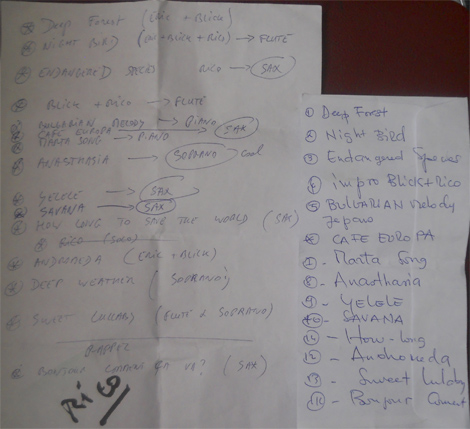 Deep Forest (Eric + Blick)
Night Bird ( + Blick + Rico) → FLUTE
ENDANGERED SPECIES Rico → SAX
Blick + Rico → FLUTE
BULGARIAN MELODY → PIANO
CAFE EUROPA → SAX
MARTA SONG →
ANASTHASIA → SOPRANO Cool
YELELE → SAX
SAVANA → SAX
HOW LONG TO SAVE THE WORLD (SAX)
RICO (SOLO)
ANDROMEDA (ERIC + BLICK)
DEEP WEATHER (SOPRANO)
SWEET LULLABY (FLUTE & SOPRANO)
RAPPEL
BONJOUR COMMENT ÇA VA? (SAX)
① Deep Forest
② Night Bird
③ Endangered Species
④ impro Blick + Rico
⑤ BULGARIAN melody
⑥ CAFE EUROPA
- Marta Song
⑧ - Anasthasia
⑨ - YELELE
⑩ - SAVANA
- How-long
- Andromeda
⑬ - Sweet lullaby
- Bonjour Coment